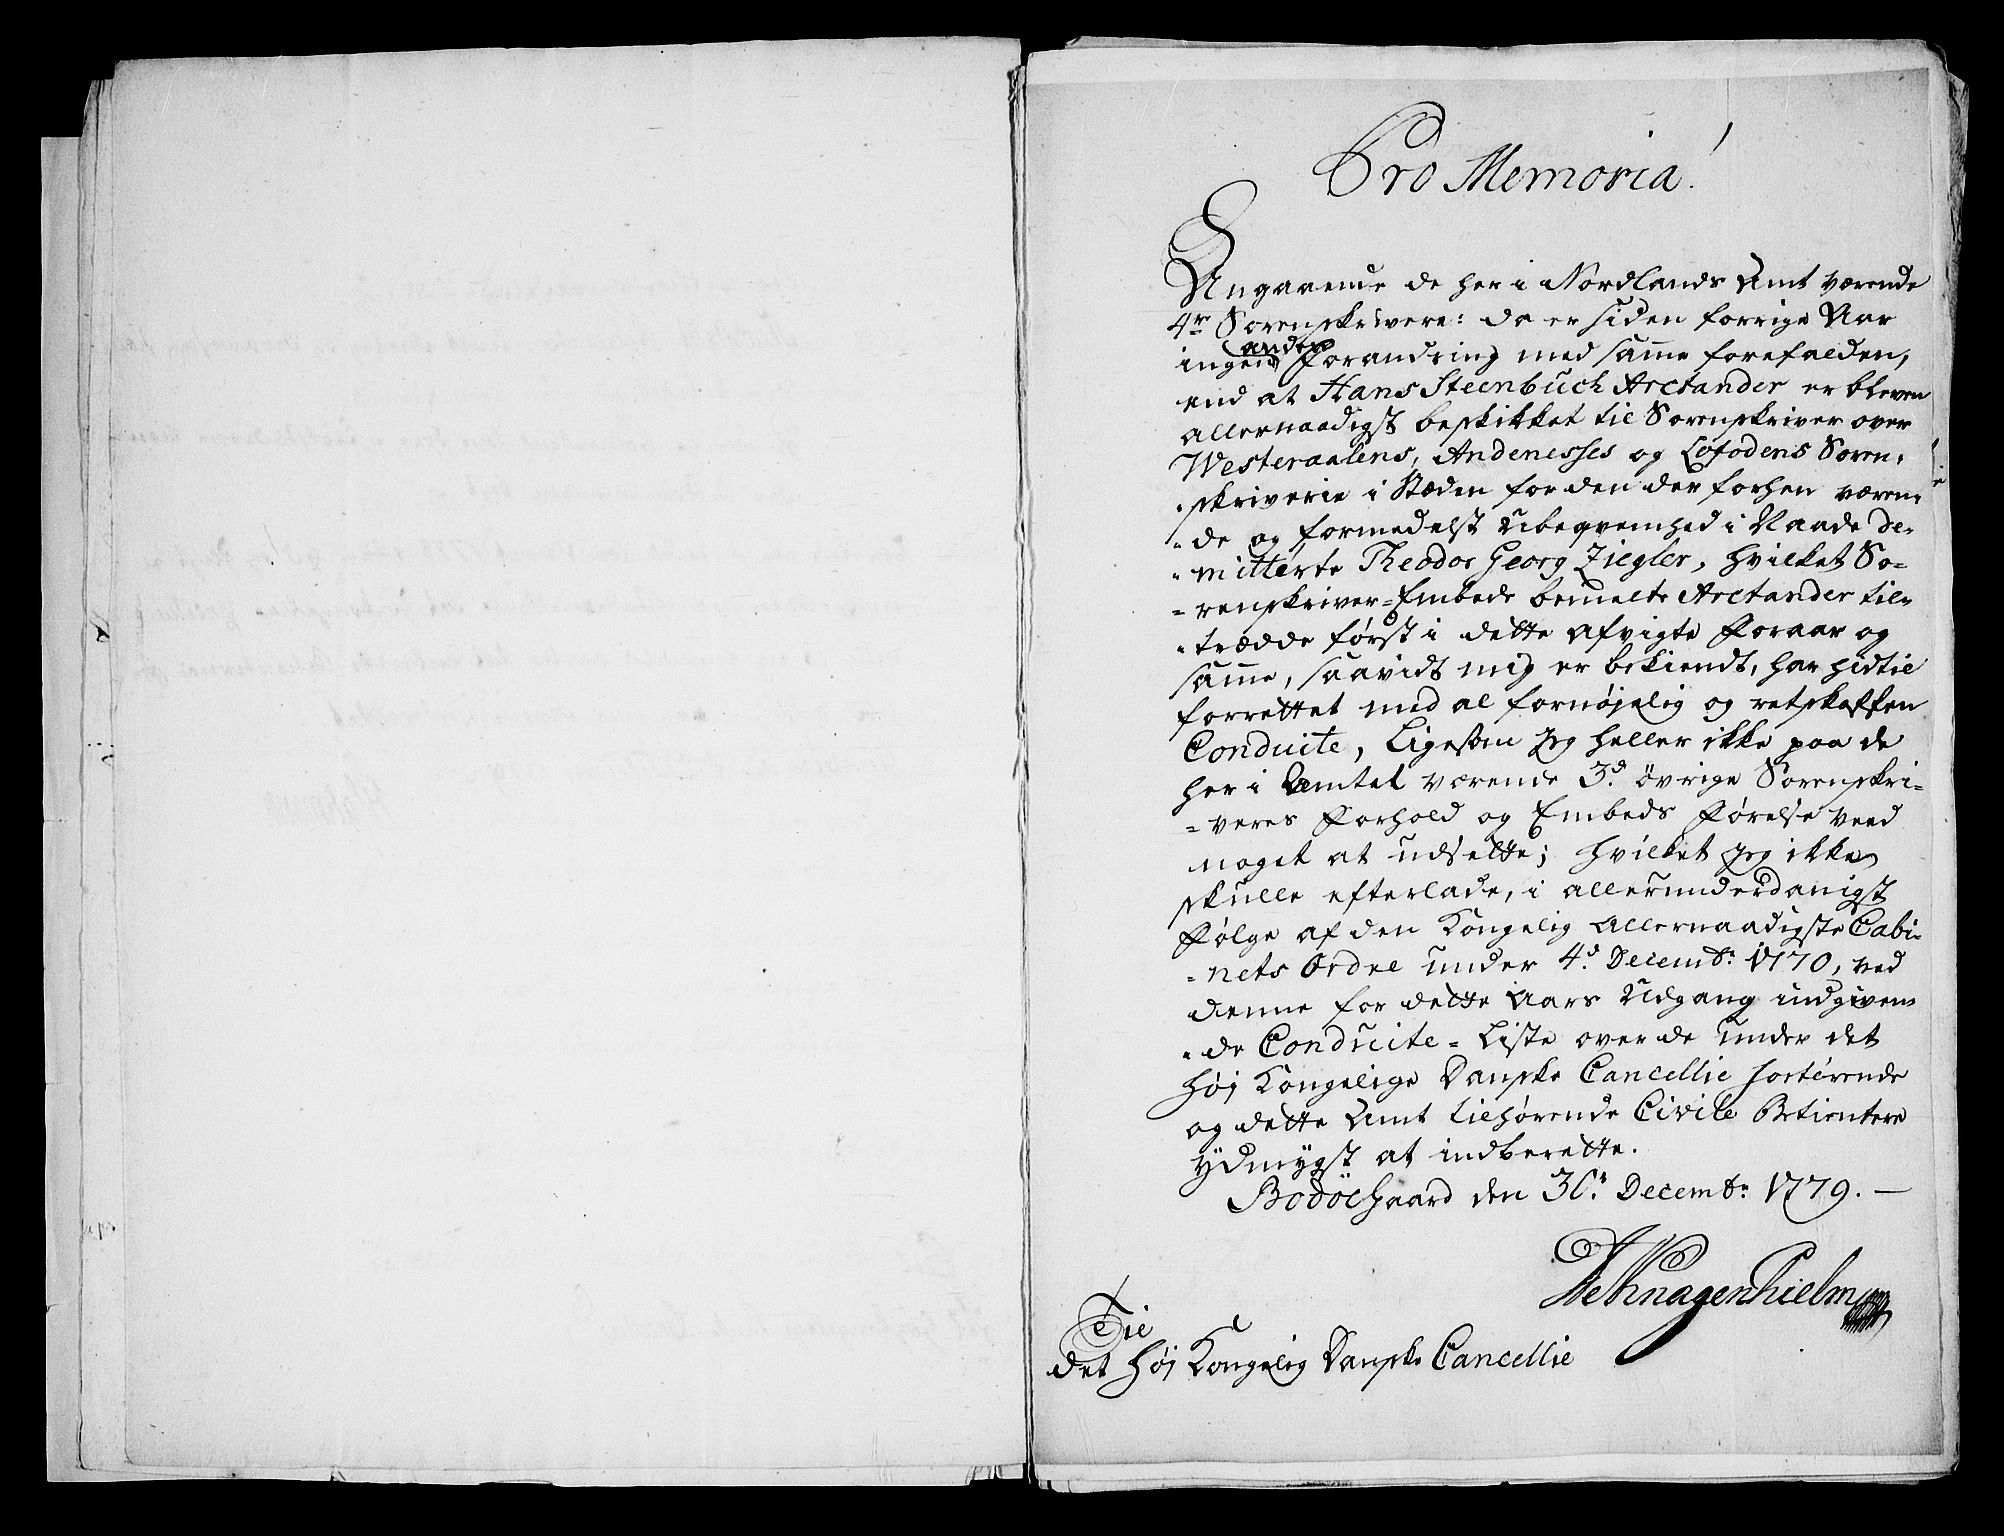 Pro Memoria!
Angaaende de her i Nordlands Amt værende
4re Sorenskrivere: da er siden forrige Aar
ingen anden Forandring med samme forefalden,
end at Hans Steenbuch Arctander er bleven
allernaadigst beskikket til Sorenskriver over
Westeraalens, Andenesses og Lofodens Soren-
-skriverie i Stæden for den der forhen væren-
-de og formedelst Ubeqvemhed i Naade de-
-mitterte Theodor Georg Ziegler, hvilket So-
-renskriver-Embede bemelte Arctander til-
-trædde først i dette afvigte Foraar og
samme, saavidt mig er bekiendt, har hidtil
forrettet med al fornøjelig og retskaffen
Conduite, ligesom jeg heller ikke paa de
her i Amtet værende 3de övrige Sorenskri-
-veres Forhold og Embeds Førelse veed
noget at udsette; hvilket jeg ikke
skulle efterlade, i allerunderdanigst
Følge af den Kongelig allernaadigste Cabi-
-nets Ordre under 4de Decembr: 1770, ved
denne for dette Aars Udgang indgiven-
-de Conduite-Liste over de under det
høj Kongelige Danske Cancellie sorterende
og dette Amt tilhørende Civile Betientere
ydmygst at indberette.
Bodöegaard den 30te Decembr: 1779. —
Hagenhielm
Til
det høj Kongelig Danske Cancellie